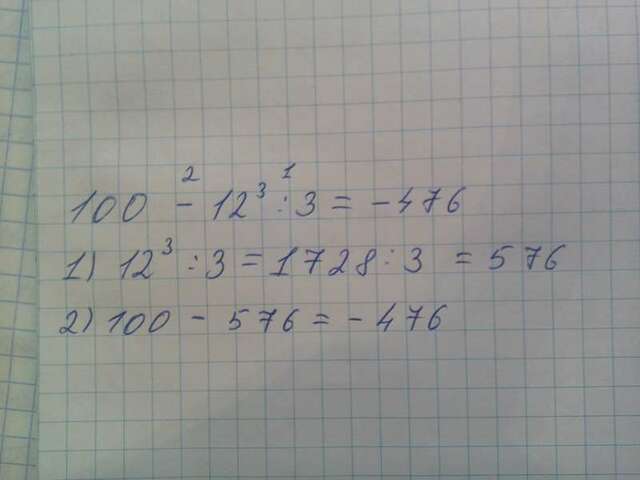 2 1
100 - 12³ : 3 = -476
1) 12³ : 3 = 1728 : 3 = 576
2) 100 - 576 = -476